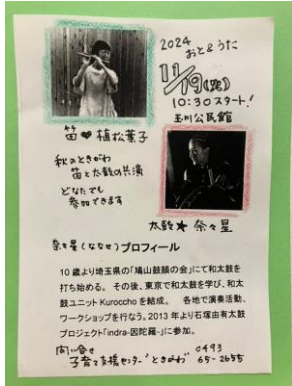 2024
おと&うた
11/19(火)
10:30スタート!
玉川公民館
笛♥植松葉子
秋のときがわ
笛と太鼓の共演
どなたでも
参加できます
太鼓★奈々星
奈々星(ななせ)プロフィール
10歳より埼玉県の「鳩山鼓願の会」にて和太鼓を
打ち始める。その後、東京で和太鼓を学び、和太
鼓ユニットKuroochoを結成。 各地で演奏活動、
ワークショップを行なう。2013年より石塚由有太鼓
プロジェクト「indra-因陀羅-」に参加。
問い合せ
子育て支援センター"ときがわ" 0493
65-2655